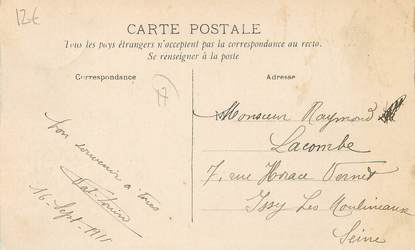 12€
CARTE POSTALE
Tous les pays étrangers n'acceptent pas la correspondance au recto.
Se renseigner à la poste
Correspondance
Adresse
Bon souvenir à tous
16 Sept. 1911
Monsieur Raymond
Lacombe
7, rue Horace Vernet
Issy Les Moulineaux
Seine